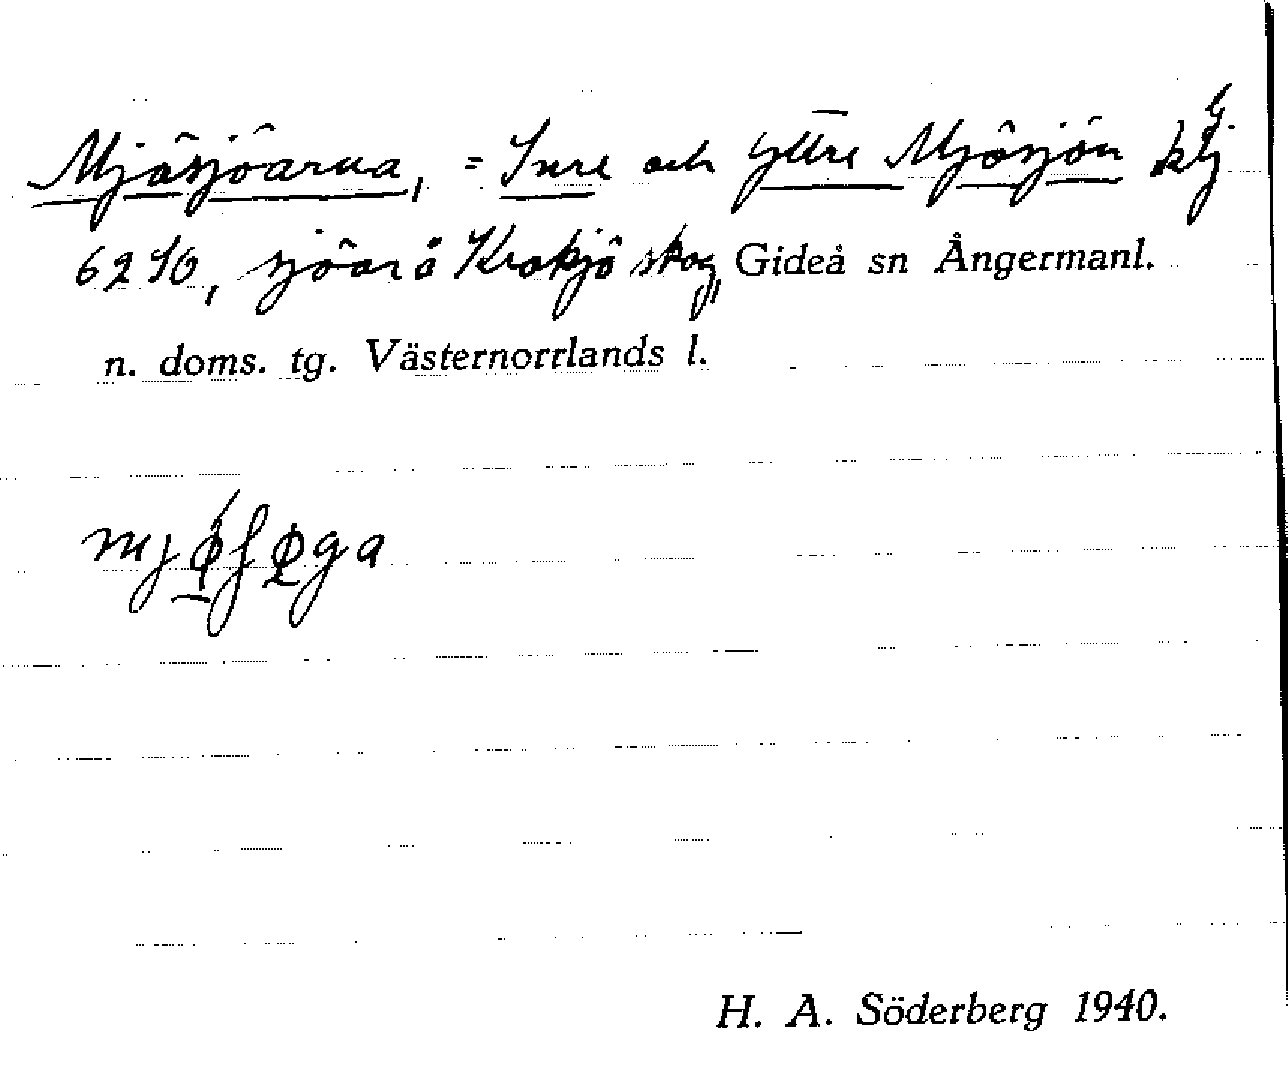 Mjösjöarna, = Inre och Yttre Mjösjön
6240, sjöar å Kroksjö skog, Gideå sn Ångermanl.
n. doms. tg. Västernorrlands l.
H. A. Söderberg 1940.